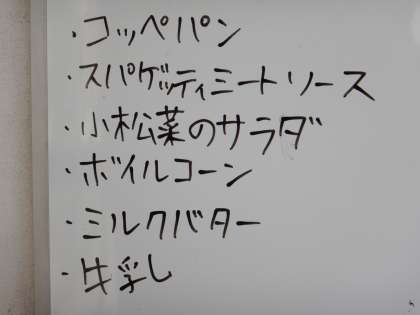 ・コッペパン
・スパゲッティミートソース
・小松菜のサラダ
・ボイルコーン
・ミルクバター
・牛乳し